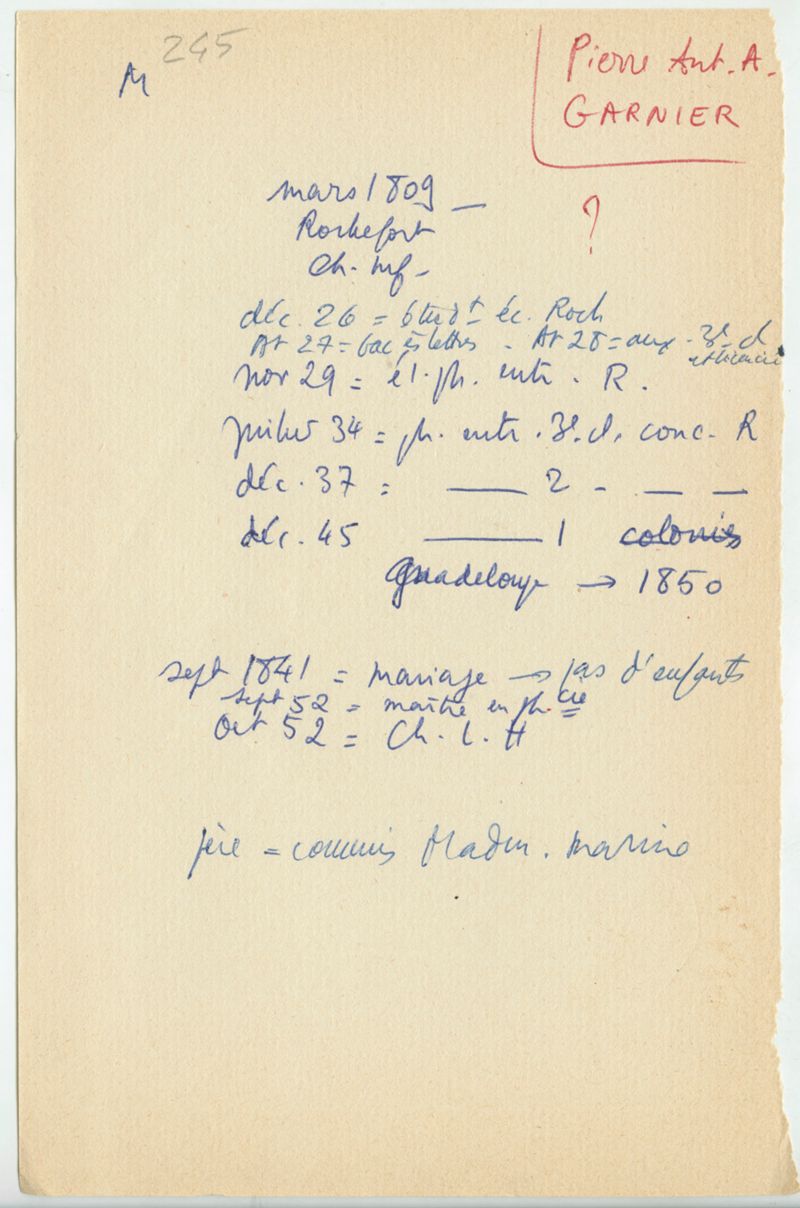 245
M
Pierre Ant. A.
GARNIER
mars 1809 —
?
Rochefort
Ch. Inf -
déc. 26 = étudt éc. Roch
At 27 = bac ès lettres - At 28 = aux. 3e cl
nov 29 = él. ph. entr. R.
juillet 34 = ph. entr. 3e cl. conc. R
déc. 37 = —— 2 - — —
déc. 45 —— 1 colonies
Guadeloupe → 1850
sept 1841 = mariage → pas d'enfants
sept 52 = maître en ph.cie
Oct 52 = Ch. L. H
père = commis Madm. marine